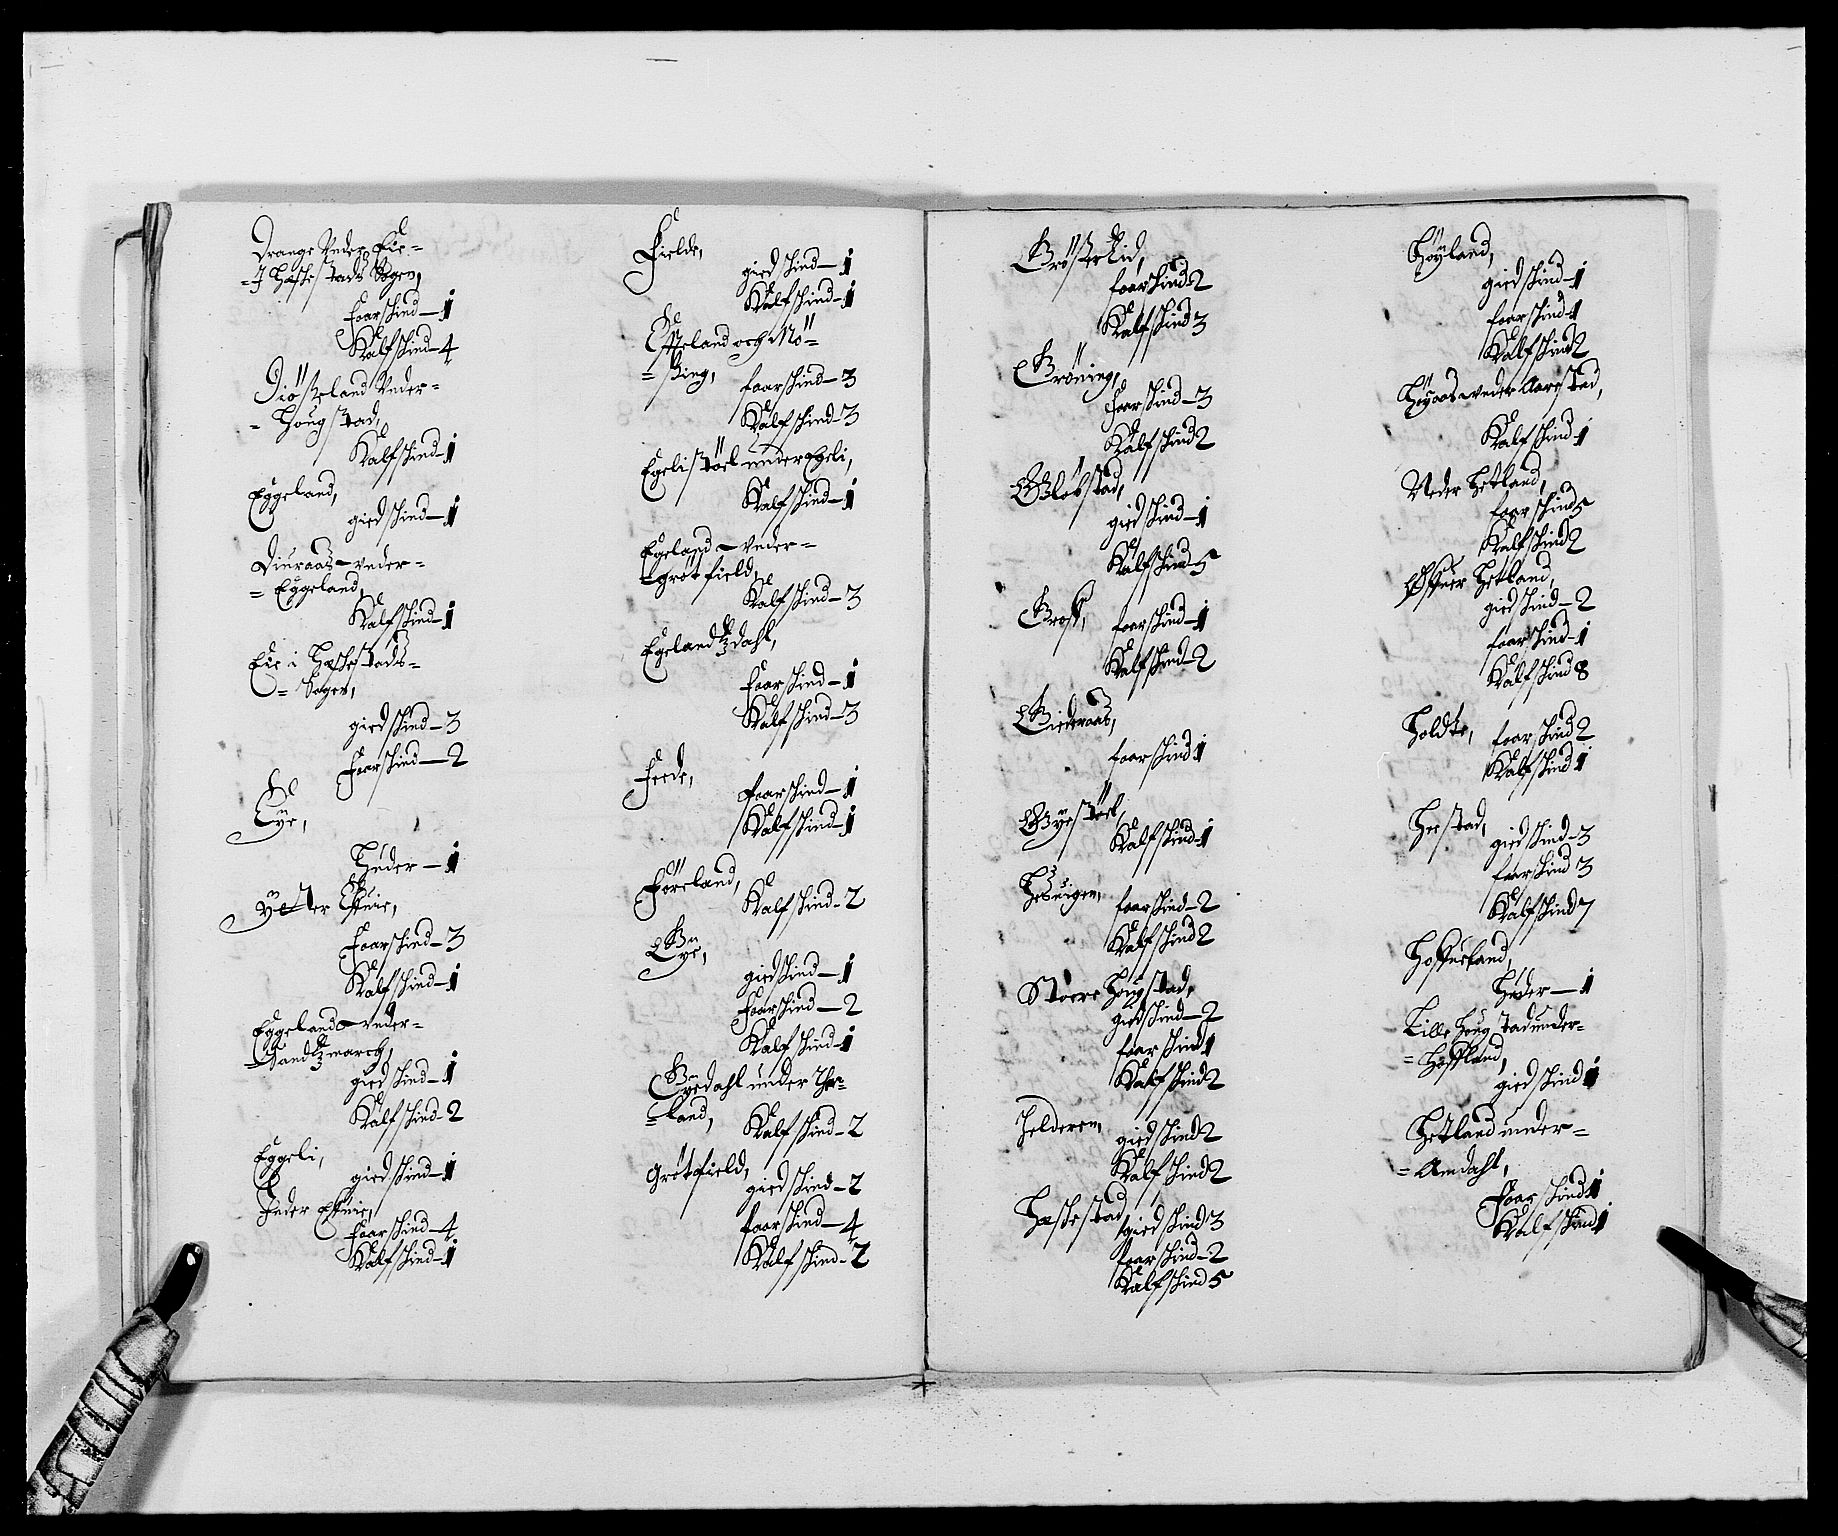 Drange Under Eie-
=J Hæskestads Sogen,
Faarskind-1
Kalfskind-4
Diößeland Under-
=Hougstad,
Kalfskind-1
Eggeland,
giedskind-1
Diuraas-under-
=Eggeland,
Kalfskind-1
Eie i Hæskestads-
=Sogen,
giedskind-3
Faarskind-2
Eÿe,
Huder-1
ÿtter Efuie,
Faarskind-3
Kalfskind-1
Eggeland-under-
=Sandtzmarch,
giedskind-1
Kalfskind-2
Eggeli,
giedskind-1
Inder Efuie,
Faarskind-4
Kalfskind-1
Fielde,
giedskind-1
Kalfskind-1
Efteland och Mö-
=ßing, faarskind-3
Kalfskind-3
Egelistöel under Egeli,
Kalfskind-1
Egeland-under-
=grötfield,
Kalfskind-3
Egelandtzdahl,
Faarskind-1
Kalfskind-3
Feede,
Faarskind-1
Kalfskind-1
Föreland,
Kalfskind-2
Gÿe,
giedskind-1
Faarskind-2
Kalfskind-1
Gÿedahl under Thor-
=land, Kalfskind-2
Grötfield,
giedskind-2
faarskind-4
Kalfskind-2
Größerlid,
faarskind 2
Kalfskind 3
Gröning,
Faarskind-3
Kalfskind 2
Gløbstad,
giedskind-1
Kalfskind 5
Groß, faarskind-1
Kalfskind-2
Giederaas,
faarskind 1
Gÿestöel,
Kalfskind 1
Hesuigen, faarskind-2
Kalfskind 2
Stoere Hougstad,
giedskind-2
faarskind 1
Kalfskind 2
Helderen, giedskind 2
Kalfskind 2
Hæskestad,
giedskind 3
faarskind-2
Kalfskind 5
Höÿland,
giedskind-1
faarskind 1
Kalfskind 2
Höÿaas under Aarrestad,
Kalfskind 1
Neder Hetland,
faarskind 5
Kalfskind 2
Øfuer Hetland,
giedskind-2
faarskind-1
Kalfskind 8
Holdte, faarskind 2
Kalfskind 1
Heestad, giedskind-3
faarskind 3
Kalfskind 7
Hofueland,
Huder-1
Lille Hougstad under-
=Hofland,
giedskind 1
Hetland under-
=Amdahl,
Faarskind 1
Kalfskind 1